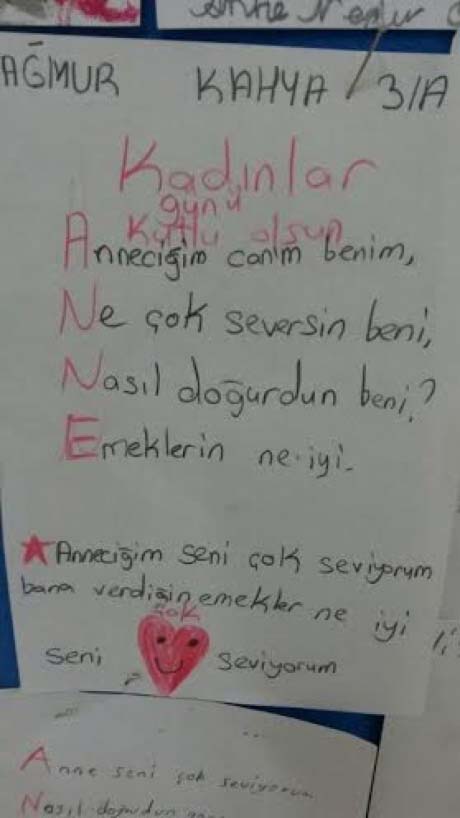 Anne
AĞMUR KAHYA 3/A
Kadınlar
günü
Kutlu olsun
Anneciğim canım benim,
Ne çok seversin beni,
Nasıl doğurdun beni?
Emeklerin ne iyi.
★ Anneciğim seni çok seviyorum
bana verdiğin emekler ne iyi
çok
seni seviyorum
Anne seni çok seviyorum
Nasıl doğurdun